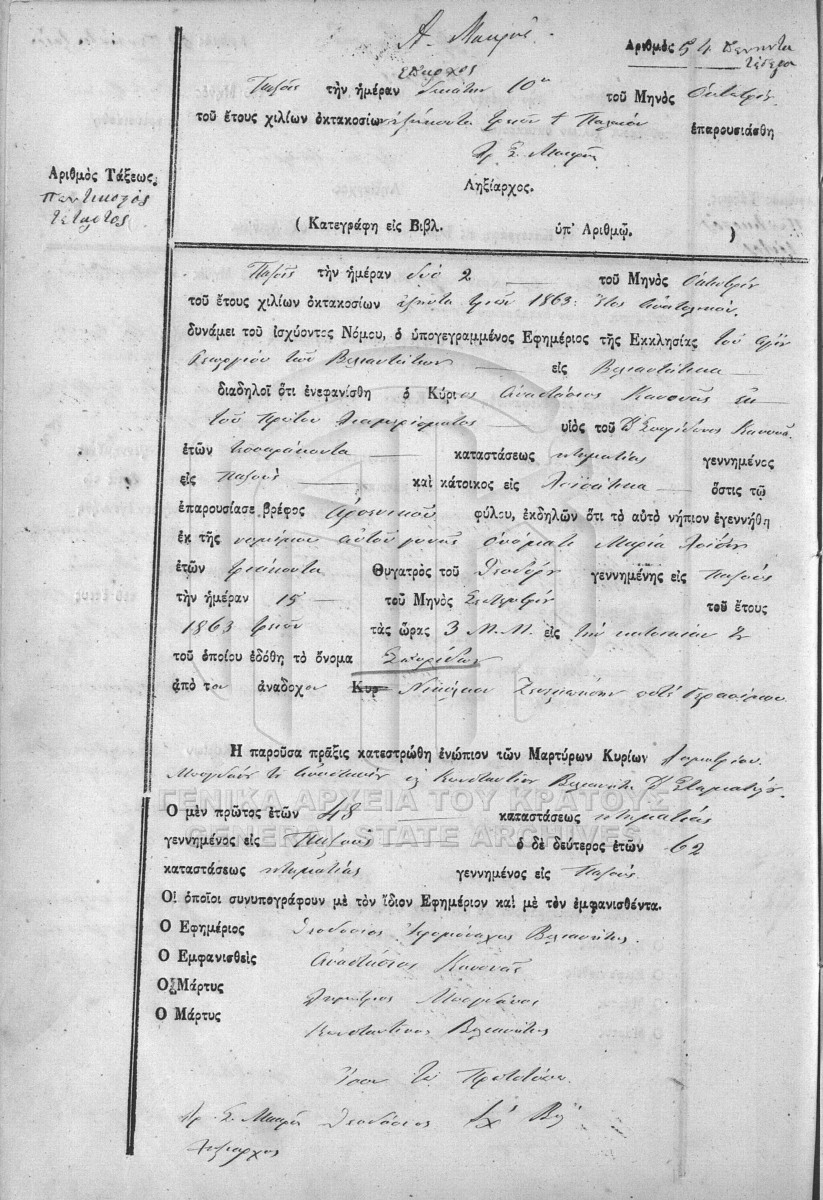 Α. Μακρής
Ἀριθμὸς 54 πενῆντα
τέσερα
Ἔπαρχος
Παξοῖς τὴν ἡμέραν δεκάτην 10ην τοῦ Μηνὸς Ὀκτωβρίου
τοῦ ἔτους χιλίων ὀκτακοσίων ἐξήκοντα τριῶν Παλαιόν ἐπαρουσιάσθη
Σ. Μακρῆς
Ἀριθμὸς Τάξεως.
πεντικοστὸς
τέταρτος
Ληξίαρχος.
( Κατεγράφη εἰς Βιβλ. ὑπ' Ἀριθμῷ. )
Παξοῖς τὴν ἡμέραν δύο 2 τοῦ Μηνὸς Ὀκτωβρίου
τοῦ ἔτους χιλίων ὀκτακοσίων ἑξῆντα τριῶν 1863: ἔτος
δυνάμει τοῦ ἰσχύοντος Νόμου, ὁ ὑπογεγραμμένος Ἐφημέριος τῆς Ἐκκλησίας τοῦ ἁγίου
Γεωργίου τῶν Βελιανιτάτων εἰς Βελιανιτάτικα
διαδηλοῖ ὅτι ἐνεφανίσθη ὁ Κύριος Ἀναστάσιος Κανονᾶς ἐκ
τοῦ Πρώτου Διαμερίσματος υἱὸς τοῦ Σπυρίδωνος Κανονᾶ
ἐτῶν τεσσαράκοντα καταστάσεως κτηματίας γεννημένος
εἰς Παξοὺς καὶ κάτοικος εἰς ὅστις τῷ
ἐπαρουσίασε βρέφος ἀρσενικοῦ φύλου, ἐκδηλῶν ὅτι τὸ αὐτὸ νήπιον ἐγεννήθη
ἐκ τῆς νομίμου αὐτοῦ γυνῆς ὀνόματι Μαρία
ἐτῶν τριάκοντα Θυγατρὸς τοῦ Θεοδώρου γεννημένης εἰς Παξοὺς
τὴν ἡμέραν 15 τοῦ Μηνὸς Σεπτεμβρίου τοῦ ἔτους
1863 τριῶν τὰς ὥρας 3 Μ.Μ. εἰς τὴν κατοικίαν
τοῦ ὁποίου ἐδόθη τὸ ὄνομα Σπυρίδων
ἀπὸ τον ἀνάδοχον Κυρ Νικόλαον ποτὲ Γερασίμου
Ἡ παροῦσα πρᾶξις κατεστρώθη ἐνώπιον τῶν Μαρτύρων Κυρίων Δημητρίου
Μπογδάνου τοῦ Ἀναστασίου καὶ Κωνσταντίνου Βελιανίτη Σταματίου
ΓΕΝΙΚΑ ΑΡΧΕΙΑ ΤΟΥ ΚΡΑΤΟΥΣ
GENERAL STATE ARCHIVES
Ὁ μὲν πρῶτος ἐτῶν 48 καταστάσεως κτηματίας
γεννημένος εἰς Παξοὺς ὁ δὲ δεύτερος ἐτῶν 62
καταστάσεως κτηματίας γεννημένος εἰς Παξοὺς
Οἱ ὁποῖοι συνυπογράφουν μὲ τὸν ἴδιον Ἐφημέριον καὶ μὲ τὸν ἐμφανισθέντα.
Ο Ἐφημέριος Θεοδόσιος Ἱερομόναχος Βελιανίτης
Ο Ἐμφανισθεὶς Ἀναστάσιος Κανονᾶς
Ο Μάρτυς Δημήτριος Μπογδάνος
Ο Μάρτυς Κωνσταντῖνος Βελιανίτης
Ἴσον τῷ Πρωτοτύπῳ
Σ. Μακρῆς Θεοδόσιος Βελ
Ληξίαρχος